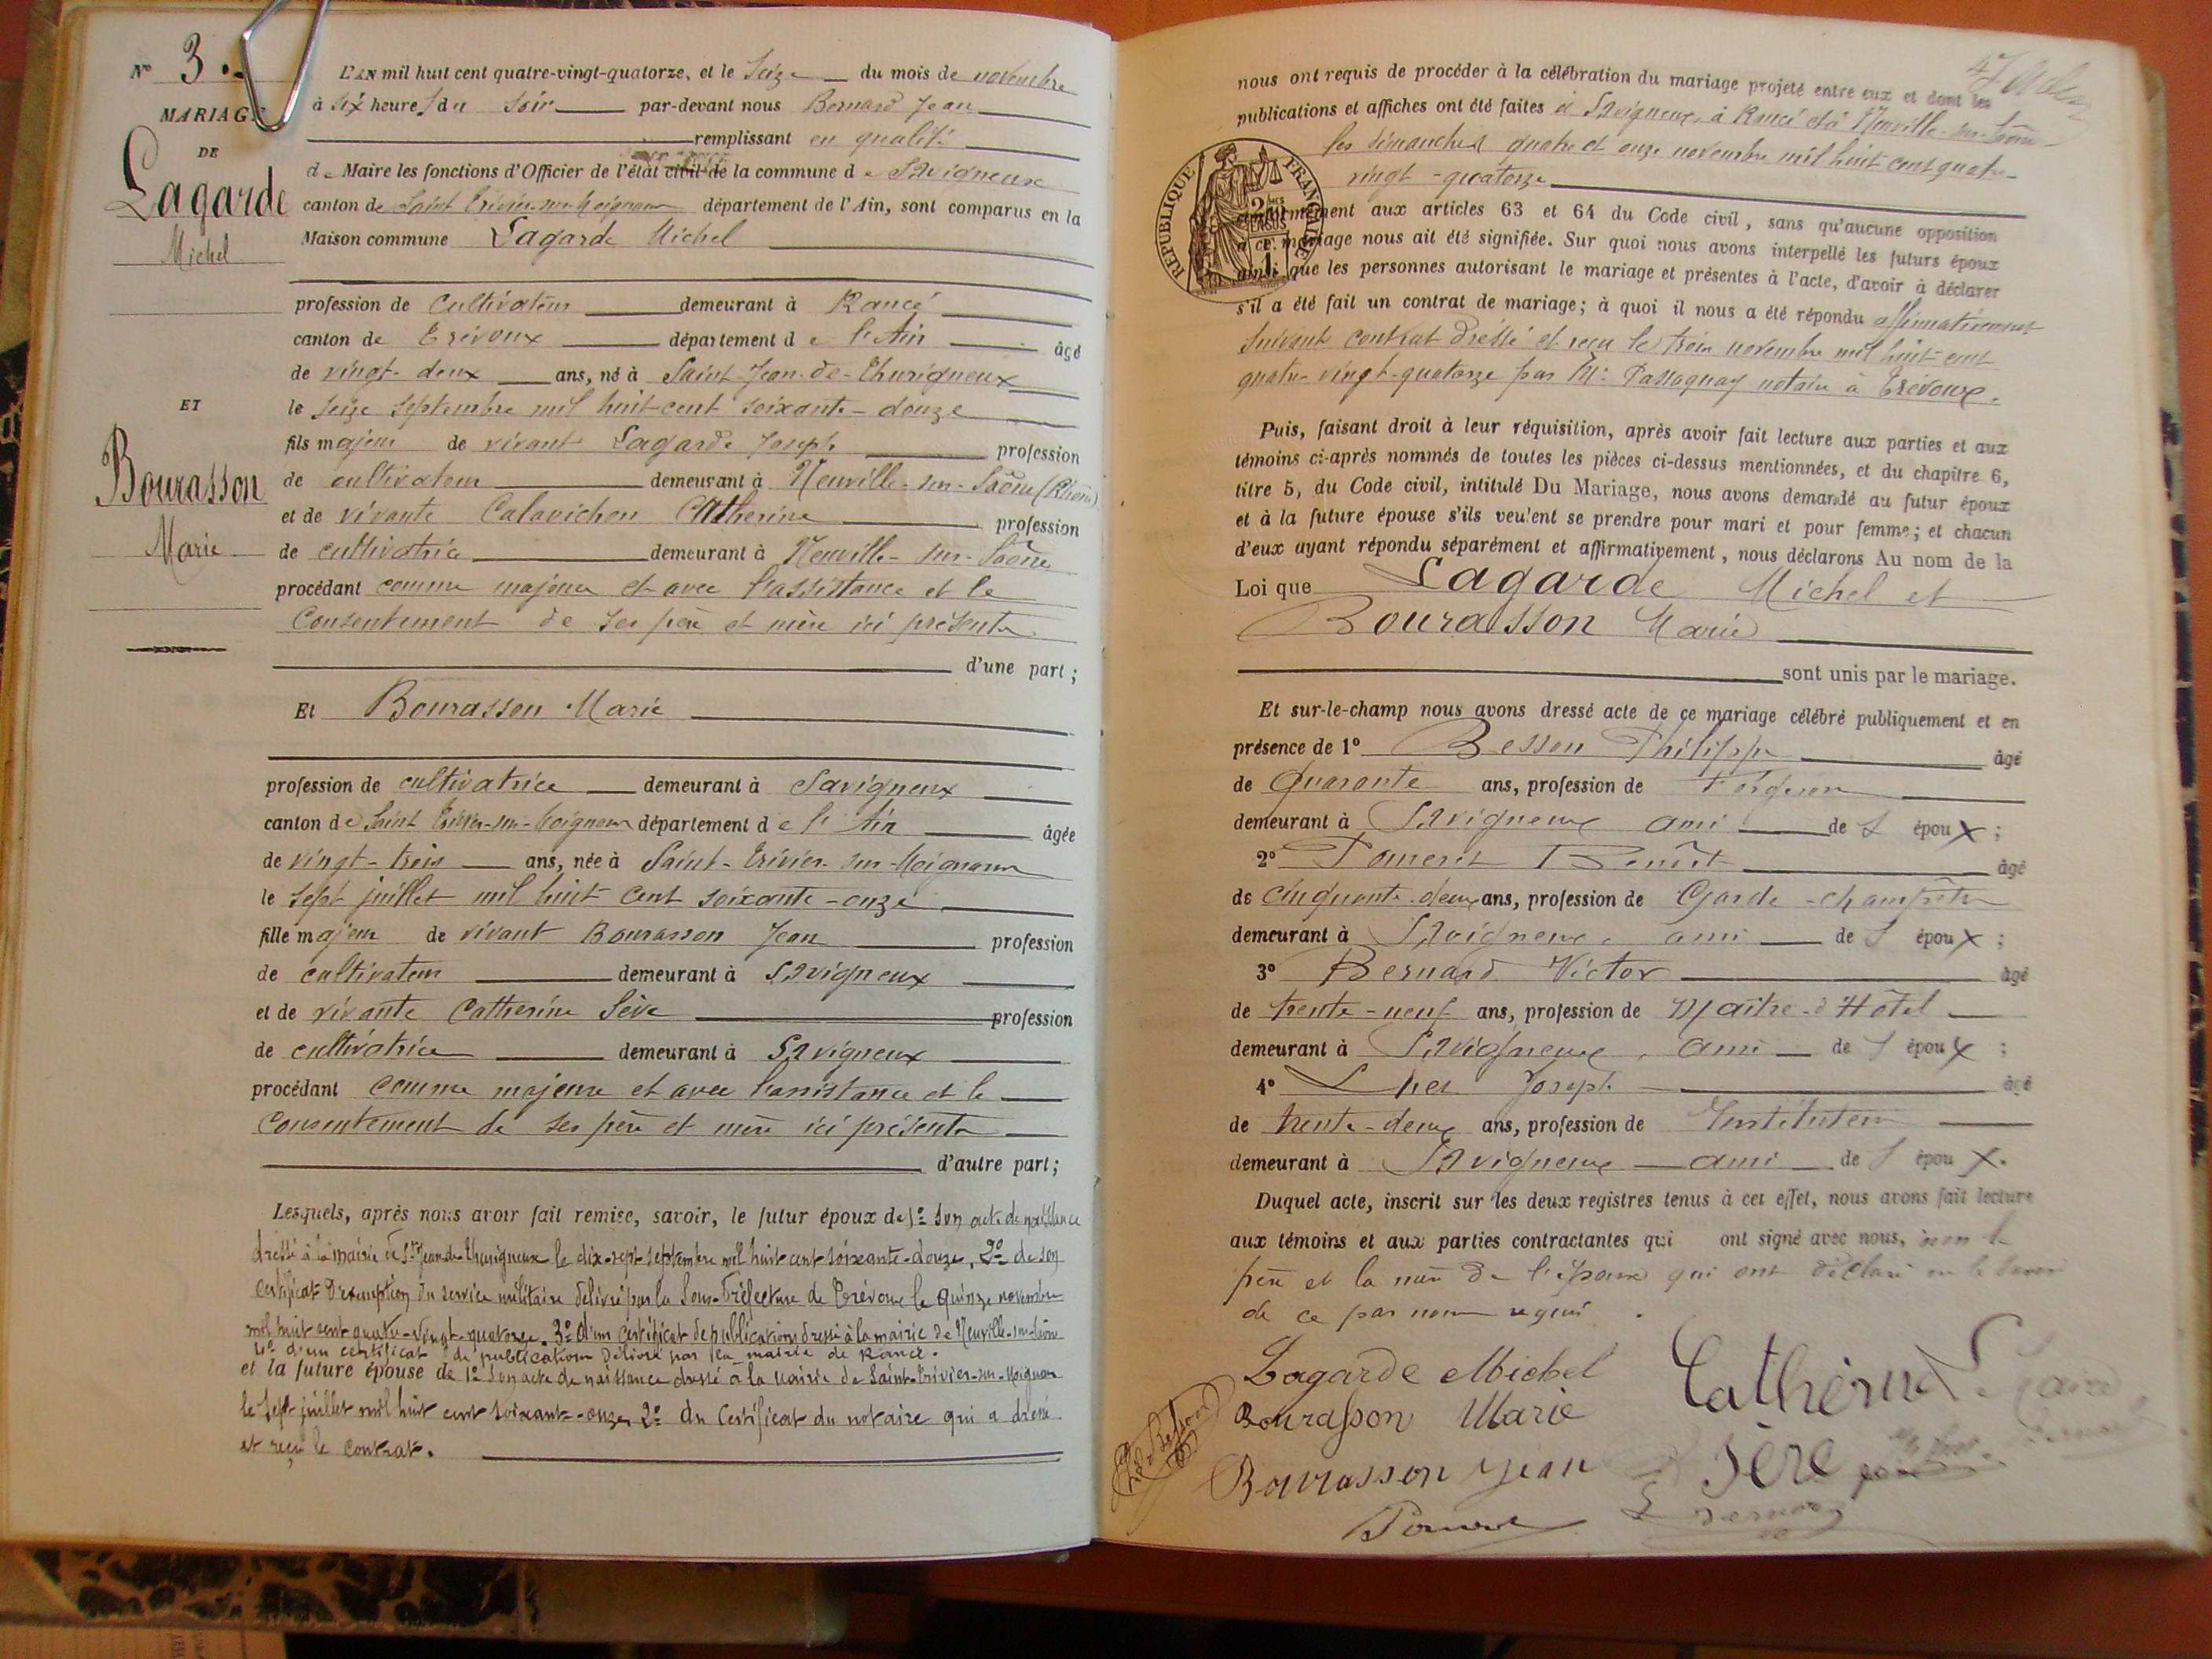 N° 3.
MARIAGE
DE
Lagarde
Michel
ET
Bourasson
Marie
L'AN mil huit cent quatre-vingt-quatorze, et le Seize du mois de novembre
à six heures du soir par-devant nous Bernard Jean
remplissant en qualité
de Maire les fonctions d'Officier de l'état civil de la commune de Savigneux
canton de Saint Trivier-sur-Moignans département de l'Ain, sont comparus en la
Maison commune Lagarde Michel
profession de Cultivateur demeurant à Rancé
canton de Trévoux département de l'Ain âgé
de vingt-deux ans, né à Saint-Jean-de-Thurigneux
le seize septembre mil huit-cent soixante-douze
fils majeur de vivant Lagarde Joseph profession
de cultivateur demeurant à Neuville-sur-Saône (Rhône)
et de vivante Calavichon Catherine profession
de cultivatrice demeurant à Neuville-sur-Saône
procédant comme majeur et avec l'assistance et le
Consentement de ses père et mère ici présents
d'une part;
Et Bourasson Marie
profession de cultivatrice demeurant à Savigneux
canton de Saint Trivier-sur-Moignans département de l'Ain âgée
de vingt-trois ans, née à Saint-Trivier-sur-Moignans
le sept juillet mil huit cent soixante-onze
fille majeure de vivant Bourasson Jean profession
de cultivateur demeurant à Savigneux
et de vivante Catherine Sève profession
de cultivatrice demeurant à Savigneux
procédant comme majeure et avec l'assistance et le
Consentement de ses père et mère ici présents
d'autre part;
Lesquels, après nous avoir fait remise, savoir, le futur époux de 1° Son acte de naissance
dressé à la mairie de St Jean-de-Thurigneux le dix-sept septembre mil huit cent soixante-douze, 2° de son
certificat d'exemption du service militaire délivré par la Sous-Préfecture de Trévoux le quinze novembre
mil huit cent quatre-vingt-quatorze. 3° d'un certificat de publications dressé à la mairie de Neuville-sur-Saône
4° d'un certificat de publication délivré par la mairie de Rancé.
et la future épouse de 1° Son acte de naissance dressé à la mairie de Saint-Trivier-sur-Moignans
le sept juillet mil huit cent soixante-onze, 2° du Certificat du notaire qui a dressé
et reçu le contrat.
nous ont requis de procéder à la célébration du mariage projeté entre eux et dont les
publications et affiches ont été faites à Savigneux, à Rancé et à Neuville-sur-Saône
les dimanches quatre et onze novembre mil huit cent quatre-
vingt-quatorze
RÉPUBLIQUE FRANÇAISE
conformément aux articles 63 et 64 du Code civil, sans qu'aucune opposition
à ce mariage nous ait été signifiée. Sur quoi nous avons interpellé les futurs époux
ainsi que les personnes autorisant le mariage et présentes à l'acte, d'avoir à déclarer
s'il a été fait un contrat de mariage; à quoi il nous a été répondu affirmativement
suivant contrat dressé et reçu le trois novembre mil huit-cent
quatre-vingt-quatorze par Me Passaquay notaire à Trévoux.
Puis, faisant droit à leur réquisition, après avoir fait lecture aux parties et aux
témoins ci-après nommés de toutes les pièces ci-dessus mentionnées, et du chapitre 6,
titre 5, du Code civil, intitulé Du Mariage, nous avons demandé au futur époux
et à la future épouse s'ils veulent se prendre pour mari et pour femme; et chacun
d'eux ayant répondu séparément et affirmativement, nous déclarons Au nom de la
Loi que Lagarde Michel et
Bourasson Marie
sont unis par le mariage.
Et sur-le-champ nous avons dressé acte de ce mariage célébré publiquement et en
présence de 1° Besson Philippe âgé
de Quarante ans, profession de Forgeron
demeurant à Savigneux ami des époux;
2° Pomeret Benoît âgé
de cinquante-deux ans, profession de Garde-champêtre
demeurant à Savigneux, ami des époux;
3° Bernard Victor âgé
de trente-neuf ans, profession de Maître-d'Hôtel
demeurant à Savigneux, ami des époux;
4° Joseph âgé
de trente-deux ans, profession de Instituteur
demeurant à Savigneux ami des époux.
Duquel acte, inscrit sur les deux registres tenus à cet effet, nous avons fait lecture
aux témoins et aux parties contractantes qui ont signé avec nous, non le
père et la mère de l'époux qui ont déclaré ne le savoir
de ce par nous requis.
Lagarde Michel
Catherine
Bourasson Marie
Sève
Bourasson Jean